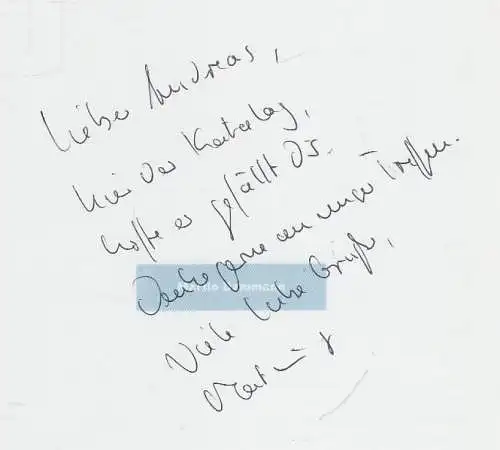 Lieber Andreas,
hier der Katalog,
hoffe er gefällt Dir.
Denke gerne an unser Treffen.
Viele liebe Grüße,